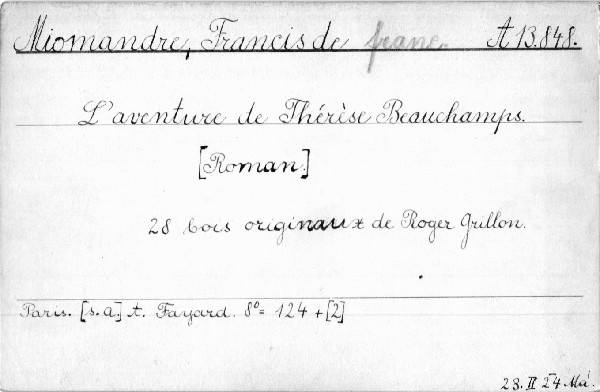 Miomandre, Francis de franc. A 13.848.
L'aventure de Thérèse Beauchamps.
[Roman.]
28 bois originaux de Roger Grillon.
Paris. [s.a.] A. Fayard. 8º= 124 + [2]
23. II 24 Mü.